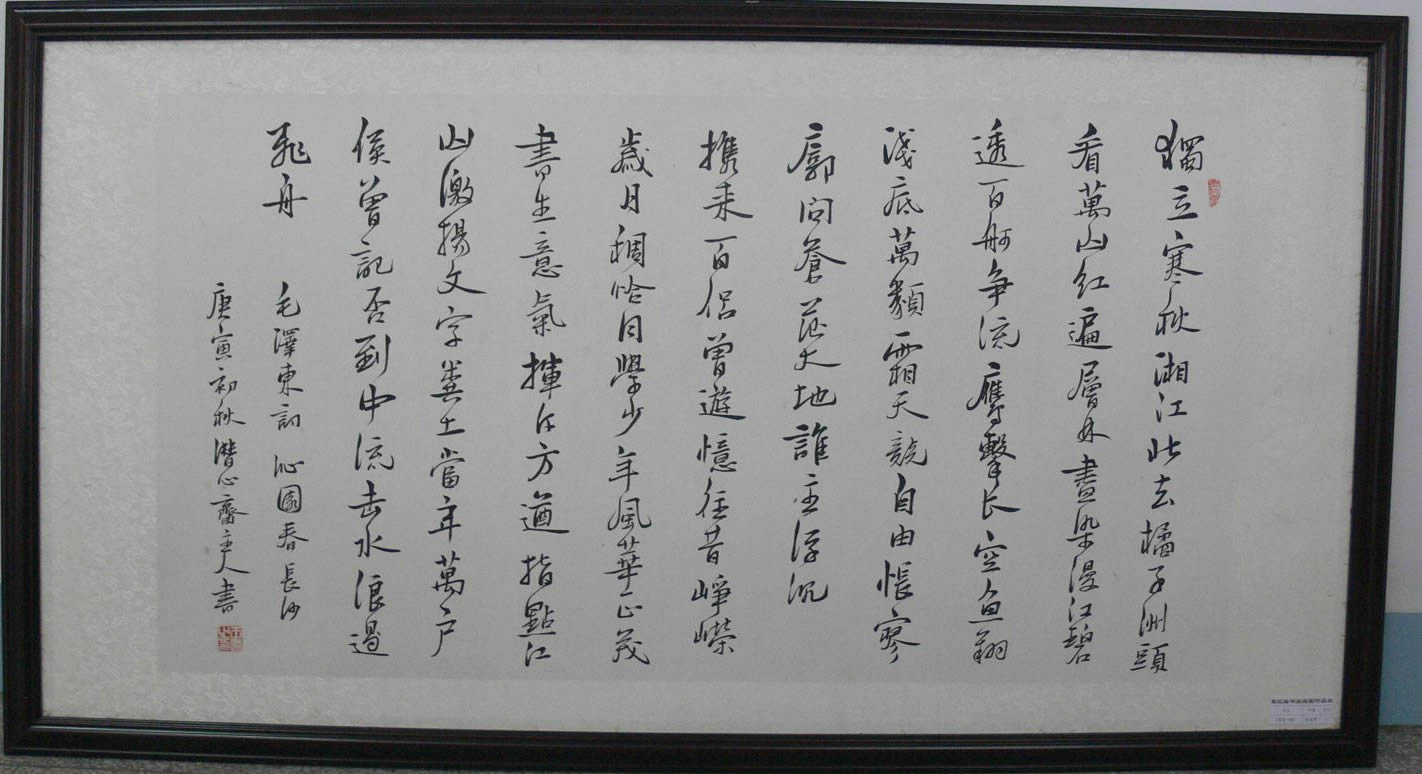 獨立寒秋湘江北去橘子洲頭
看萬山紅遍層林盡染漫江碧
透百舸爭流鷹擊长空魚翔
淺底萬類霜天競自由悵寥
廓問蒼茫大地誰主浮沉
携来百侶曾遊憶往昔崢嶸
歲月稠恰同學少年風華正茂
書生意氣揮斥方遒指點江
山激揚文字糞土當年萬户
侯曾記否到中流击水浪遏
飛舟
毛澤東詞 沁園春 長沙
庚寅初秋潛心齋主人書